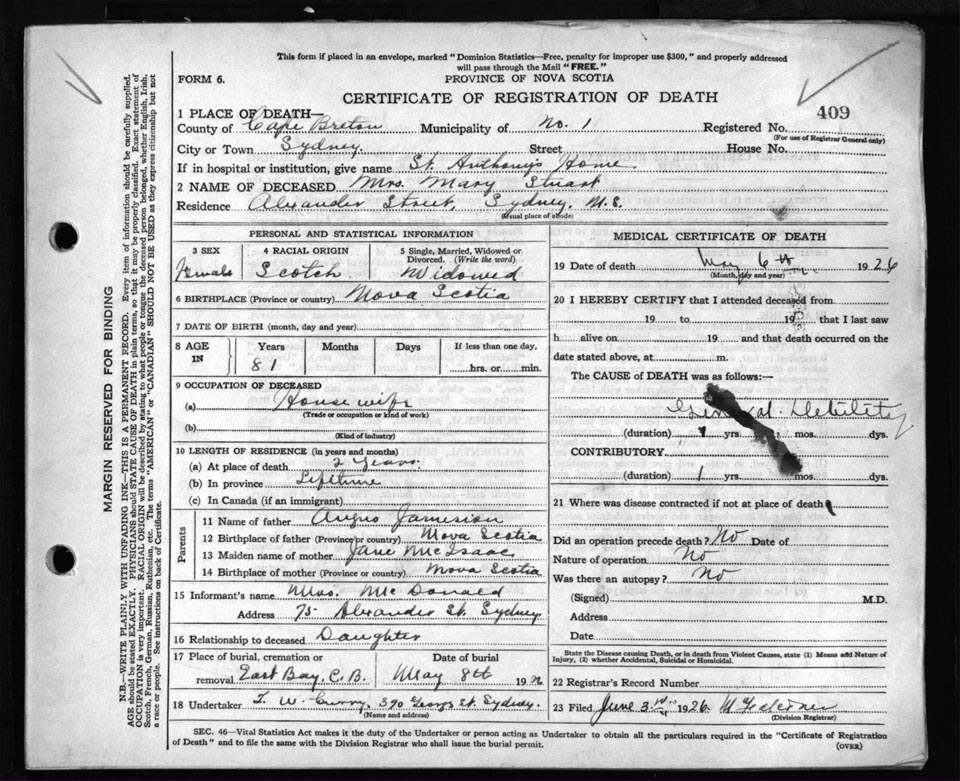 This form if placed in an envelope, marked "Dominion Statistics—Free, penalty for improper use $300," and properly addressed
will pass through the Mail "FREE."
FORM 6.
PROVINCE OF NOVA SCOTIA
CERTIFICATE OF REGISTRATION OF DEATH
409
1 PLACE OF DEATH—
County of Cape Breton Municipality of No. 1 Registered No.
(For use of Registrar General only)
City or Town Sydney Street House No.
If in hospital or institution, give name St. Anthony's Home
2 NAME OF DECEASED Mrs. Mary Stuart
Residence Alexander Street, Sydney, N.S.
(Usual place of abode)
PERSONAL AND STATISTICAL INFORMATION
3 SEX 4 RACIAL ORIGIN 5 Single, Married, Widowed or
Divorced. (Write the word)
Female Scotch Widowed
6 BIRTHPLACE (Province or country) Nova Scotia
7 DATE OF BIRTH (month, day and year)
8 AGE IN Years Months Days If less than one day,
81 hrs. or min.
9 OCCUPATION OF DECEASED
(a) House wife
(Trade or occupation or kind of work)
(b)
(Kind of industry)
10 LENGTH OF RESIDENCE (in years and months)
(a) At place of death 2 Years
(b) In province Lifetime
(c) In Canada (if an immigrant)
Parents
11 Name of father Angus Jamesion
12 Birthplace of father (Province or country) Nova Scotia
13 Maiden name of mother Jane McIsaac
14 Birthplace of mother (Province or country) Nova Scotia
15 Informant's name Mrs. McDonald
Address 75 Alexander St. Sydney
16 Relationship to deceased Daughter
17 Place of burial, cremation or Date of burial
removal East Bay, C.B. May 8th 1926
18 Undertaker F. W. Curry, 390 George St. Sydney.
(Name and address)
MEDICAL CERTIFICATE OF DEATH
19 Date of death May 6th 1926
(Month, day and year)
20 I HEREBY CERTIFY that I attended deceased from
19 to 19 that I last saw
h alive on 19 and that death occurred on the
date stated above, at m.
The CAUSE of DEATH was as follows:—
General Debility
(duration) yrs. mos. dys.
CONTRIBUTORY
(duration) 1 yrs. mos. dys.
21 Where was disease contracted if not at place of death
Did an operation precede death? No Date of
Nature of operation No
Was there an autopsy? No
(Signed) M.D.
Address
Date
State the Disease causing Death, or in death from Violent Causes, state (1) Means and Nature of
Injury, (2) whether Accidental, Suicidal or Homicidal.
22 Registrar's Record Number
23 Filed June 3rd 1926
(Division Registrar)
SEC. 46—Vital Statistics Act makes it the duty of the Undertaker or person acting as Undertaker to obtain all the particulars required in the "Certificate of Registration
of Death" and to file the same with the Division Registrar who shall issue the burial permit.
(OVER)
MARGIN RESERVED FOR BINDING
N.B.—WRITE PLAINLY WITH UNFADING INK—THIS IS A PERMANENT RECORD. Every item of information should be carefully supplied.
AGE should be stated EXACTLY. PHYSICIANS should STATE CAUSE OF DEATH in plain terms, so that it may be properly classified. Exact statement of
OCCUPATION is very important. RACIAL ORIGIN will be described by stating to what people or tongue the deceased person belonged, whether English, Irish,
Scotch, French, German, Russian, Ruthenian, etc. The terms "AMERICAN" or "CANADIAN" SHOULD NOT BE USED as they express citizenship but not
a race or people. See instructions on back of Certificate.